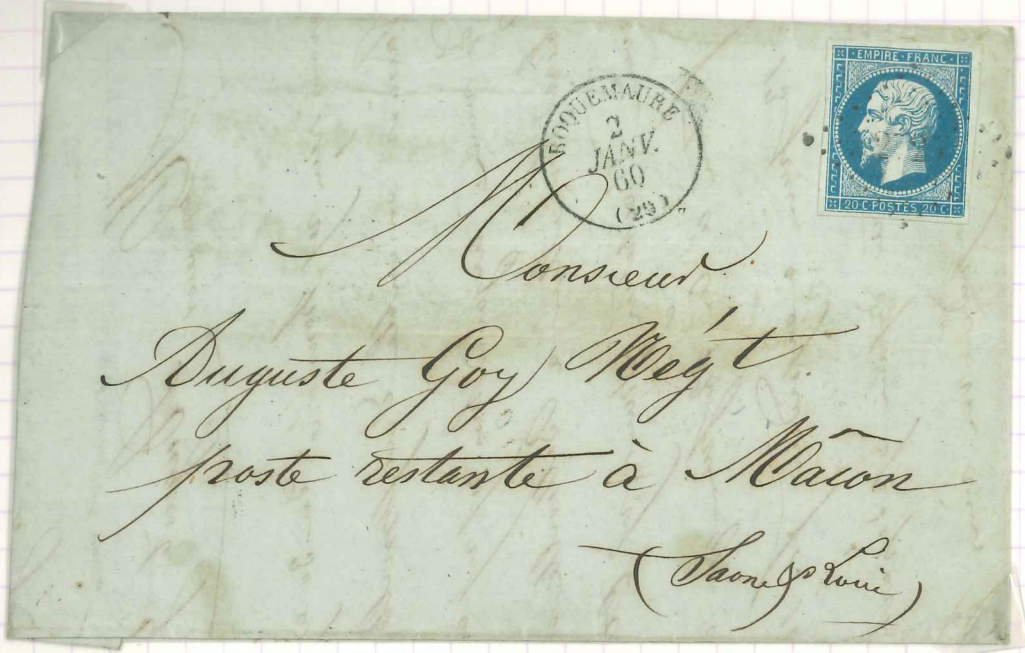 EMPIRE · FRANC ·
20 C · POSTES · 20 C
ROQUEMAURE
2
JANV.
60
(29)
Monsieur
Auguste Goy Négt
poste restante à Mâcon
(Saone & Loire)